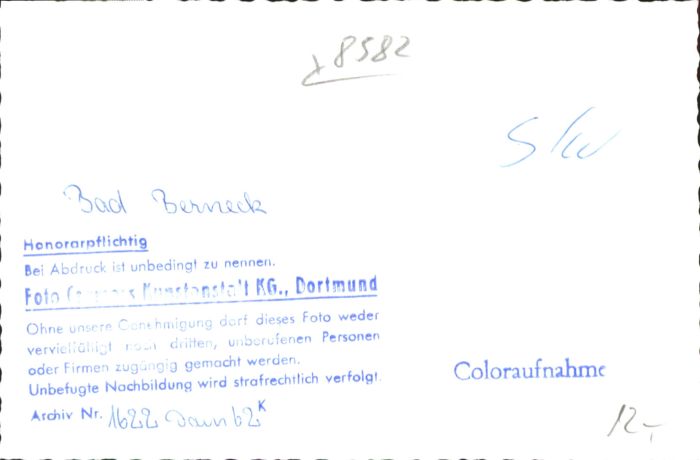 8582
Bad Berneck
Honorarpflichtig
Bei Abdruck ist unbedingt zu nennen.
Foto Kunstanstalt KG., Dortmund
Ohne unsere Genehmigung darf dieses Foto weder
vervielfältigt noch dritten, unberufenen Personen
oder Firmen zugängig gemacht werden.
Unbefugte Nachbildung wird strafrechtlich verfolgt.
Coloraufnahme
Archiv Nr. 1622 62 K
12,-